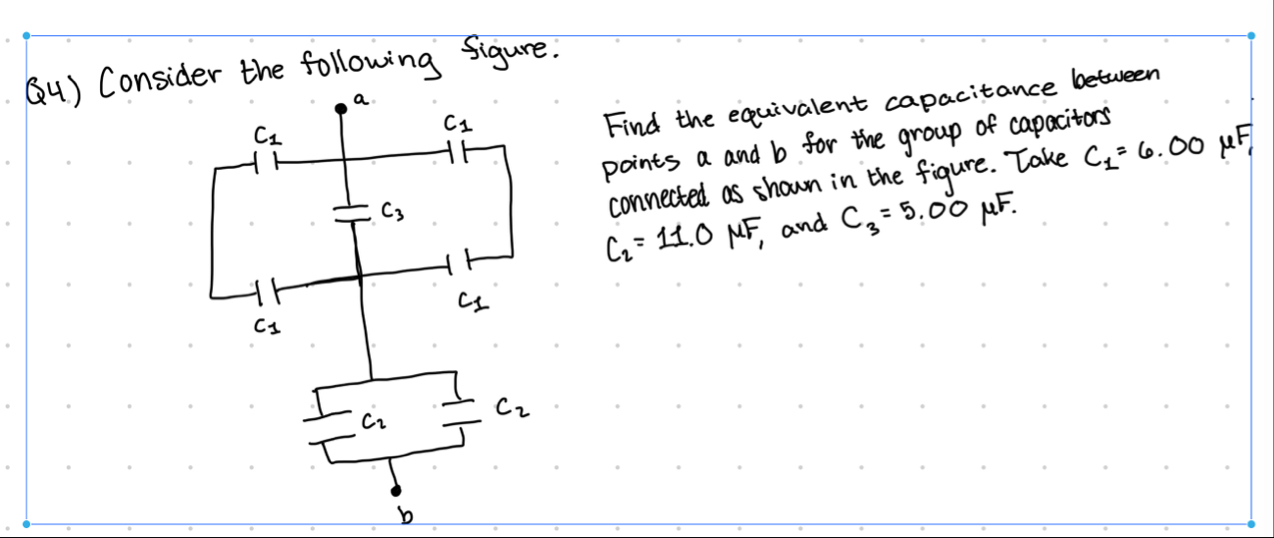 Q4) Consider the following figure.
a
C1
C1
C3
C1
C1
C2
C2
b
Find the equivalent capacitance between
points a and b for the group of capacitors
connected as shown in the figure. Take C1 = 6.00 μF,
C2 = 11.0 μF, and C3 = 5.00 μF.